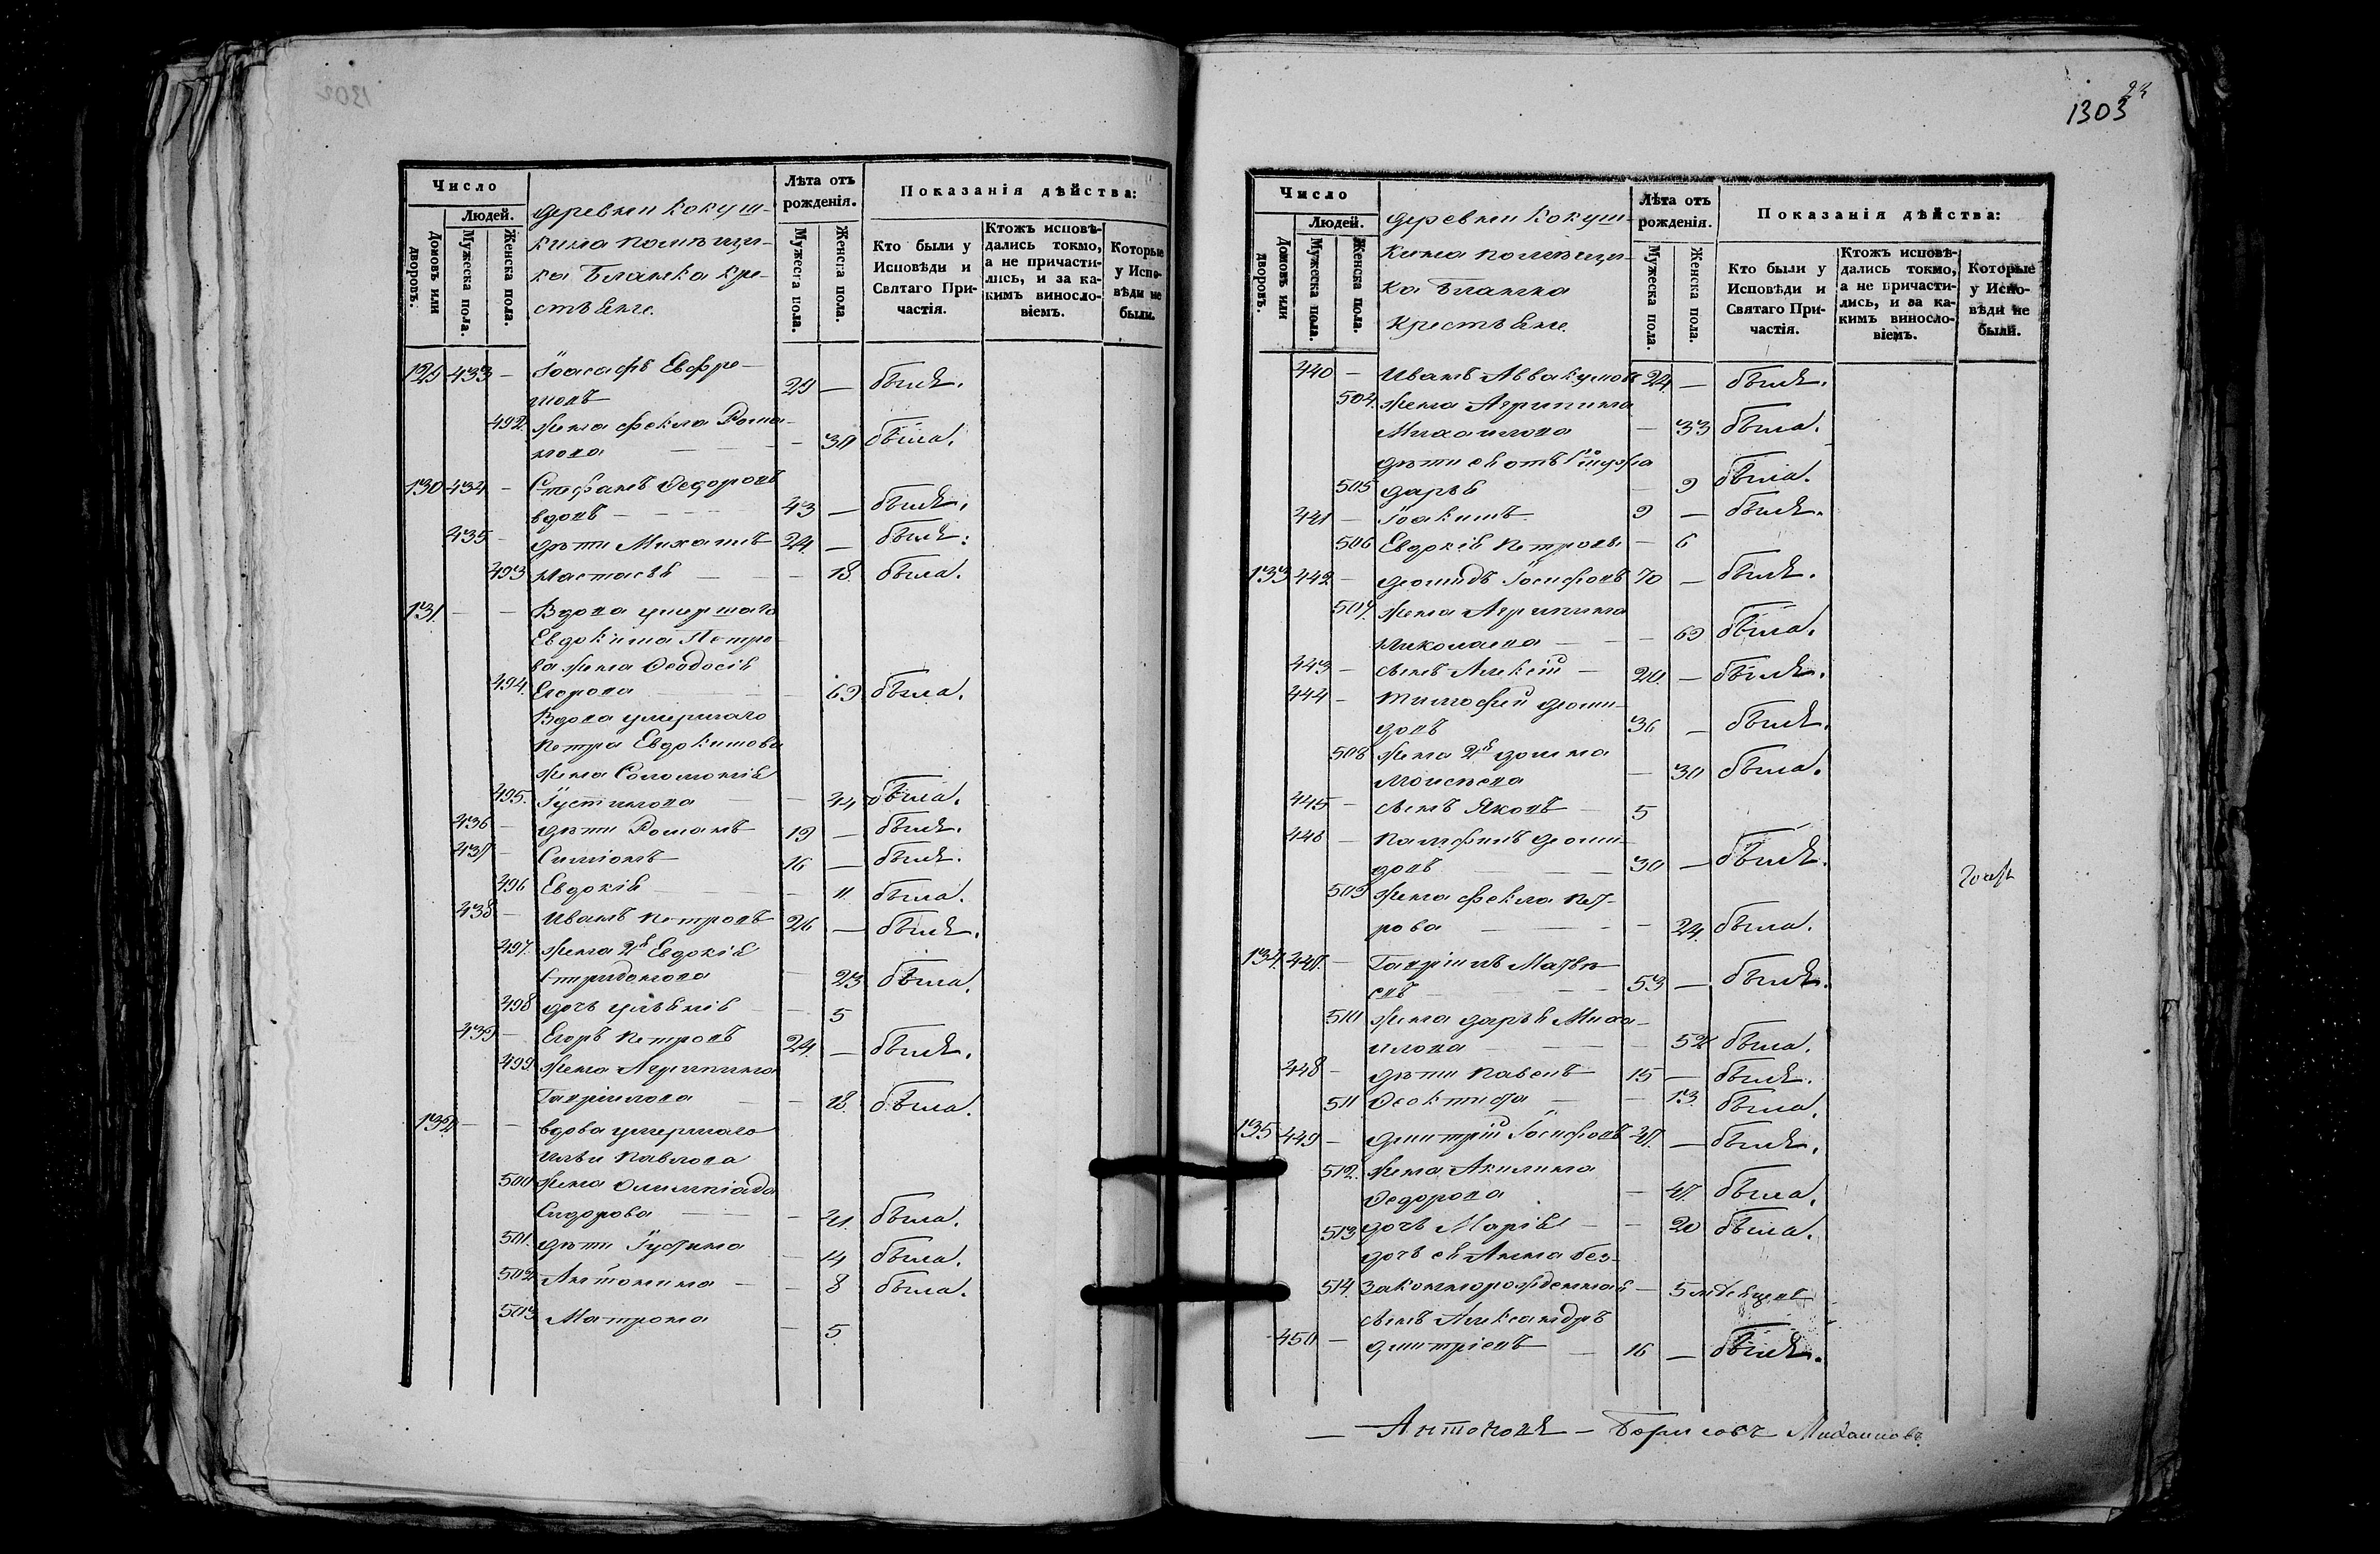 1302
Число
Людей.
Домовъ или дворовъ.
Мужеска пола.
Женска пола.
деревни Кокуш-
кина помѣщи-
ка Бланка кре-
стьяне.
Лѣта отъ
рожденія.
Мужеска пола.
Женска пола.
Показанія дѣйства:
Кто были у
Исповѣди и
Святаго При-
частія.
Ктожъ исповѣ-
дались токмо,
а не причасти-
лись, и за ка-
кимъ виносло-
віемъ.
Которые
у Испо-
вѣди не
были.
129 433 — Іоасафъ Ефре-
мовъ 29 — былъ.
492. жена Фекла Рома-
нова — — 30 была.
130 434 — Стефанъ Ѳедоровъ
вдовъ — 43 — былъ.
435 — дѣти Михаилъ 24 — былъ.
493 Настасья — — 18. была.
131. — — Вдова умершаго
Евдокима Петро-
ва жена Ѳеодосія
494. Егорова — — 69 была.
Вдова умершаго
Петра Евдокимова
жена Соломонія
495. Іустинова — — 44 была.
436 — дѣти Романъ 19 — былъ.
437 — Симіонъ — 16 — былъ.
496 Евдокія — — 11. была.
438 — Иванъ Петровъ 26 — былъ.
497. жена 2я Евдокія
Спиридонова — 23 была.
498 дочь Ульянія — — 5
439 — Егоръ Петровъ 24. — былъ.
499. жена Агрипина
Гаврилова — — 18. была.
132. — — вдова умершаго
Ильи Павлова
500 жена Олимпіада
Сидорова — — 41. была.
501. дѣти Іустина — 14 была.
502 Антонина — — 8 была.
503 Матрона — 5.
1303
Число
Людей.
Домовъ или дворовъ.
Мужеска пола.
Женска пола.
деревни Кокуш-
кина помѣщи-
ка Бланка
крестьяне.
Лѣта отъ
рожденія.
Мужеска пола.
Женска пола.
Показанія дѣйства:
Кто были у
Исповѣди и
Святаго При-
частія.
Ктожъ исповѣ-
дались токмо,
а не причасти-
лись, и за ка-
кимъ виносло-
віемъ.
Которые
у Испо-
вѣди не
были.
440 — Иванъ Аввакумовъ 24. — былъ.
504. жена Агрипина
Михаилова — 33 была.
дѣти ея отъ 1го мужа
505 Дарья — 9 была.
441 — Іоакимъ 9 — былъ.
506 Евдокія Петрова — 6
133 442 — Діомидъ Іосифовъ 70 — былъ.
507. жена Агрипина
Николаева — — 69 была.
443 — сынъ Алексій — 20. — былъ.
444 — Тимофей Діоми-
довъ 36 — былъ.
508 жена 2я Домна
Моисѣева — 30 была.
445 — сынъ Яковъ — 5
446 — Памфилъ Діоми-
довъ — 30 — былъ.
509 жена Фекла Пет-
рова — — 24. была.
134. 447. — Гавріилъ Матвѣ-
евъ — 53 — былъ.
510 жена Дарья Миха-
илова — — 52 была.
448 — дѣти Павелъ 15 — былъ.
511 Ѳеоктиста — — 13. была.
135 449 — Димитрій Іосифовъ 47. — былъ.
512. жена Акилина
Ѳедорова — 47 была.
513 дочь Марія — — 20 была.
дочь ея Анна без-
514. законнорожденная — 5 младенецъ
сынъ Александръ
450 — Дмитріевъ — 16 — былъ.
— Антоновъ — Борисовъ Михаиловъ